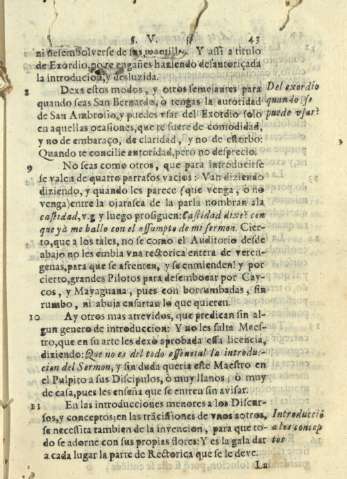 §. V. 43
ni desembolverse de sus mantillas. Y assi a titulo
de Exordio, no te engañes haziendo desautoriçada
la introducion, y desluzida.
8 Dexa estos modos, y otros semejantes para
quando seas San Bernardo, ò tengas la autoridad
de San Ambrosio, y puedes vsar del Exordio solo
en aquellas ocasiones, que te fuere de comodidad,
y no de embaraço, de claridad, y no de estorbo:
Quando te concilie autoridad, pero no desprecio.
Del exordio
quando se
puede vsar?
9 No seas como otros, que para introducirse
se valen de quatro parrafos vacios: Van diziendo
diziendo, y quando les parece (que venga, ò no
venga) entre la ojarasca de la parla nombran ala
castidad, v.g. y luego prosiguen: Castidad dixe? con
que yà me hallo con el assumpto de mi sermon. Cier-
to, que a los tales, no se como el Auditorio desde
abajo no les embia vna rectorica entera de veren-
genas, para que se afrenten, y se enmienden! y por
cierto, grandes Pilotos para desembocar por Cay-
cos, y Mayaguana, pues con borrumbadas, sin
rumbo, ni abuja ensartan lo que quieren.
10 Ay otros mas atrevidos, que predican sin al-
gun genero de introduccion: Y no les falta Maes-
tro, que en su arte les dexò aprobada essa licencia,
diziendo: Que no es del todo essensial la introduc-
cion del Sermon, y sin duda queria este Maestro en
el Pulpito a sus Discipulos, ò muy llanos, ò muy
de casa, pues les enseña que se entren sin avisar.
11 En las introducciones menores a los Discur-
sos, y conceptos, en las trãcisiones de vnos a otros,
se necessita tambien de la invencion, para que to-
do se adorne con sus propias flores: Y es la gala dar
a cada lugar la parte de Rectorica que se le deve.
Introducciõ
a los concep
tos
La